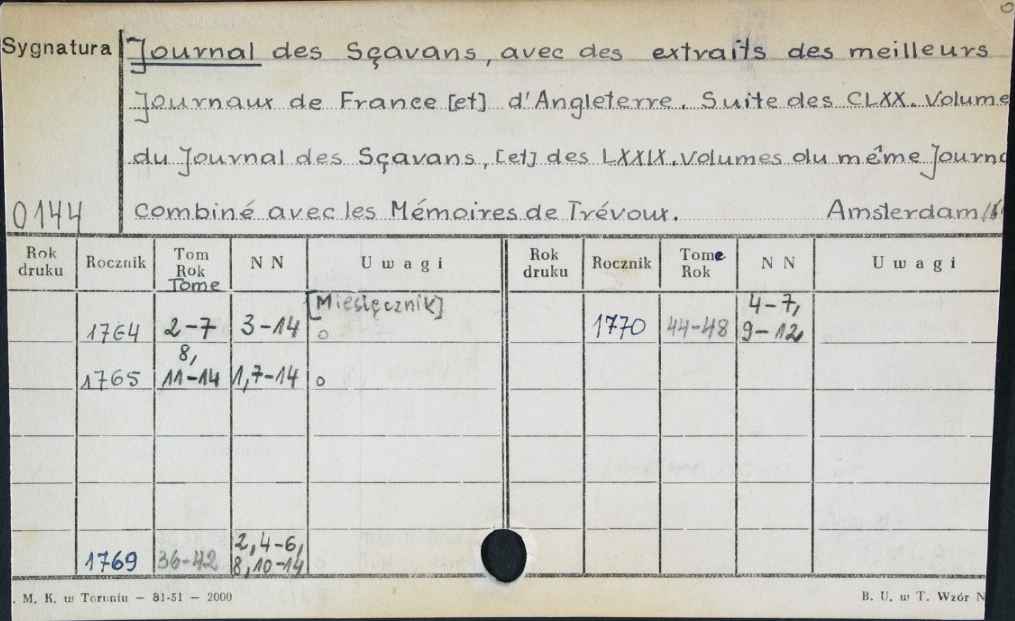 Sygnatura Journal des Sçavans, avec des extraits des meilleurs
Journaux de France [et] d'Angleterre. Suite des CLXX. Volume
du Journal des Sçavans, [et] des LXXIX. volumes du même Journa
0144 combiné avec les Mémoires de Trévoux. Amsterdam
Rok druku Rocznik Tom Rok Tome NN Uwagi Rok druku Rocznik Tome Rok NN Uwagi
[Miesięcznik]
1764 2-7 3-14 o 1770 44-48 4-7, 9-12
1765 8, 11-14 1,7-14 o
1769 36-42 2,4-6, 8,10-14
. M. K. w Toruniu - 81-51 - 2000 B. U. w T. Wzór N